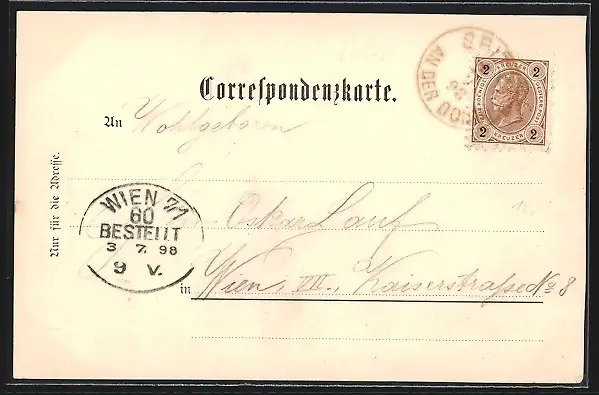 Correspondenzkarte.
An Wohlgeboren
Oskar Lauf
in Wien, VII., Kaiserstraße No 8
Nur für die Adresse.
WIEN 7/1
60
BESTELLT
3 7. 98
9 V.
AN DER
98
2 KREUZER 2
2 KREUZER 2